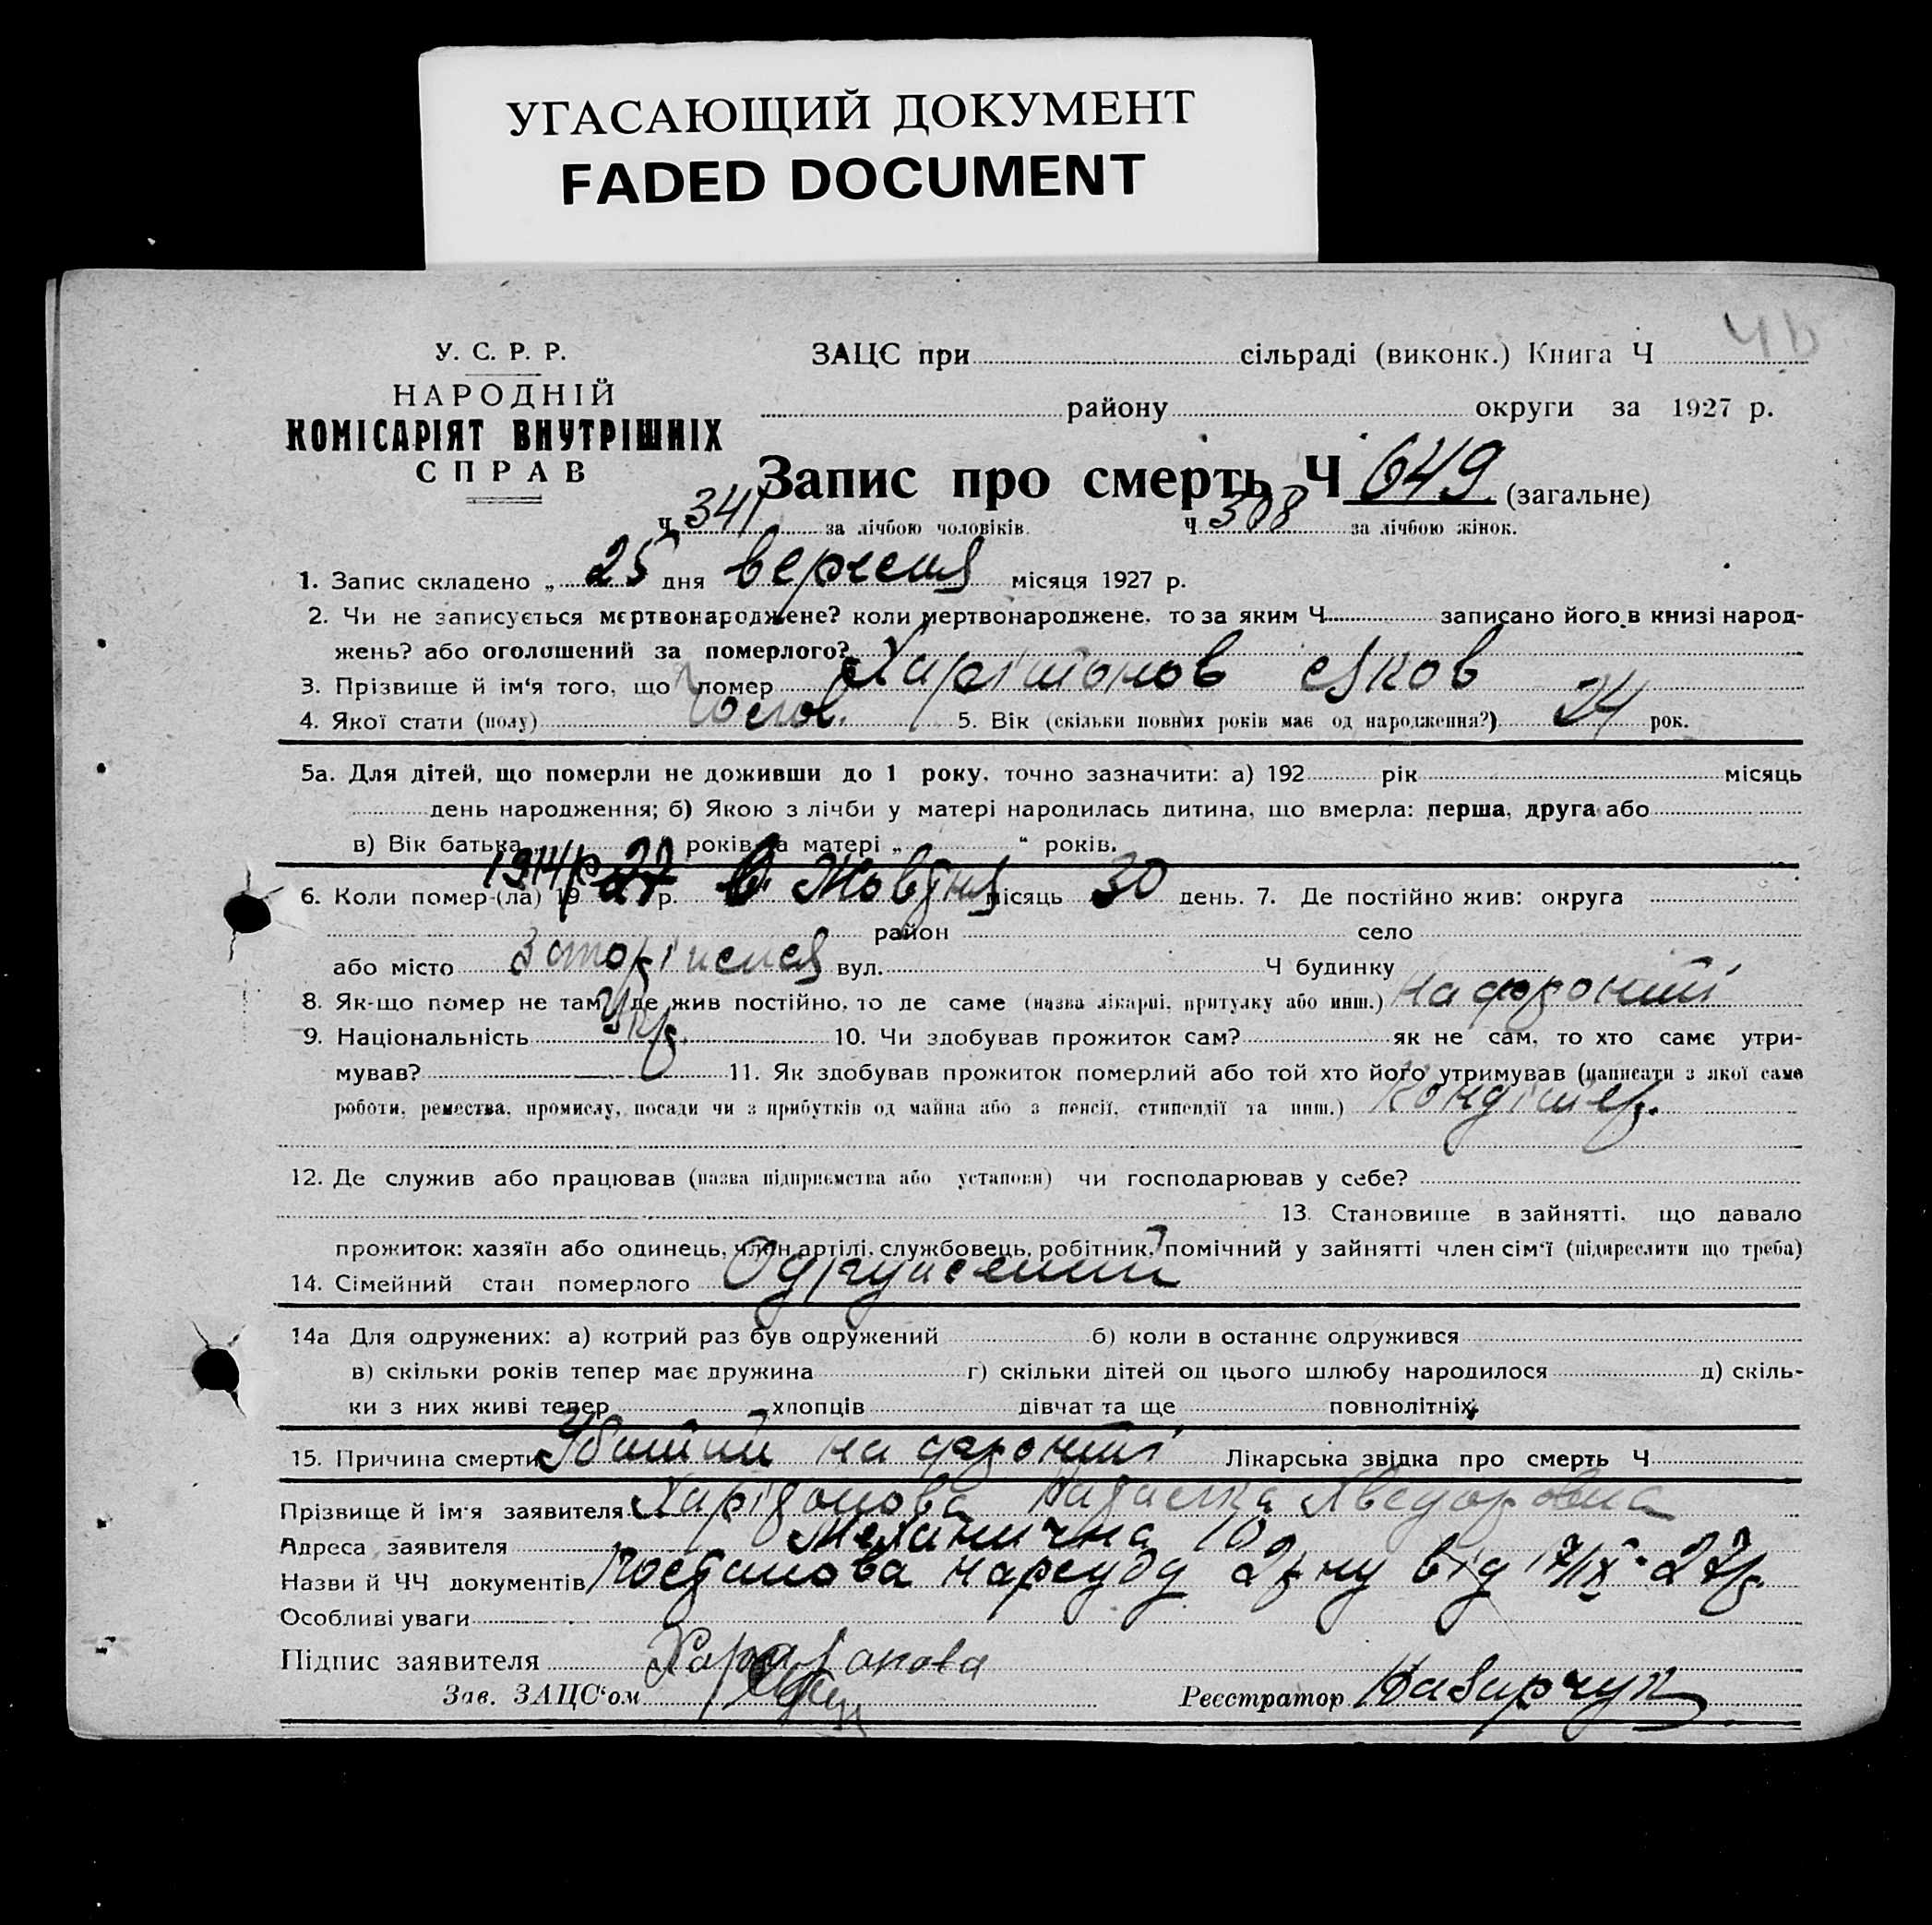 УГАСАЮЩИЙ ДОКУМЕНТ
FADED DOCUMENT
У. С. Р. Р.
НАРОДНІЙ
КОМІСАРІЯТ ВНУТРІШНІХ
СПРАВ
ЗАЦС при сільраді (виконк.) Книга Ч
району округи за 1927 р.
Запис про смерть Ч 649 (загальне)
Ч 341 за лічбою чоловіків. Ч 308 за лічбою жінок.
1. Запис складено „ 25 дня вересня місяця 1927 р.
2. Чи не записується мертвонароджене? коли мертвонароджене, то за яким Ч записано його в книзі народ-
жень? або оголошений за померлого?
3. Прізвище й ім'я того, що помер Харітонов Яков
4. Якої стати (полу) Чолов. 5. Вік (скільки повних років має од народження?) 24 рок.
5а. Для дітей, що померли не доживши до 1 року, точно зазначити: а) 192 рік місяць
день народження; б) Якою з лічби у матері народилась дитина, що вмерла: перша, друга або
в) Вік батька „ років а матері „ “ років.
6. Коли помер-(ла) 19 27 р. 1914р Жовтня місяць 30 день. 7. Де постійно жив: округа
район село
або місто вул. Ч будинку
8. Як-що помер не там, де жив постійно, то де саме (назва лікарні, притулку або инш.) на фронті
9. Національність Укр. 10. Чи здобував прожиток сам? як не сам, то хто саме утри-
мував? 11. Як здобував прожиток померлий або той хто його утримував (написати з якої саме
роботи, ремества, промислу, посади чи з прибутків од майна або з пенсії, стипендії та инш.) Кондітер.
12. Де служив або працював (назва підприємства або установи) чи господарював у себе?
13. Становище в зайнятті, що давало
прожиток: хазяїн або одинець, член артілі, службовець, робітник, помічний у зайнятті член сім'ї (підкреслити що треба)
14. Сімейний стан померлого Одружений
14а Для одружених: а) котрий раз був одружений б) коли в останнє одружився
в) скільки років тепер має дружина г) скільки дітей од цього шлюбу народилося д) скіль-
ки з них живі тепер хлопців дівчат та ще повнолітніх.
15. Причина смерти Убитий на фронті Лікарська звідка про смерть Ч
Прізвище й ім'я заявителя Харітонова Хведоровна
Адреса заявителя Механична 10
Назви й ЧЧ документів Постанова нарсуду 2р ну від 17/IX-27р.
Особливі уваги
Підпис заявителя Харитонова
Зав. ЗАЦС'ом Реєстратор